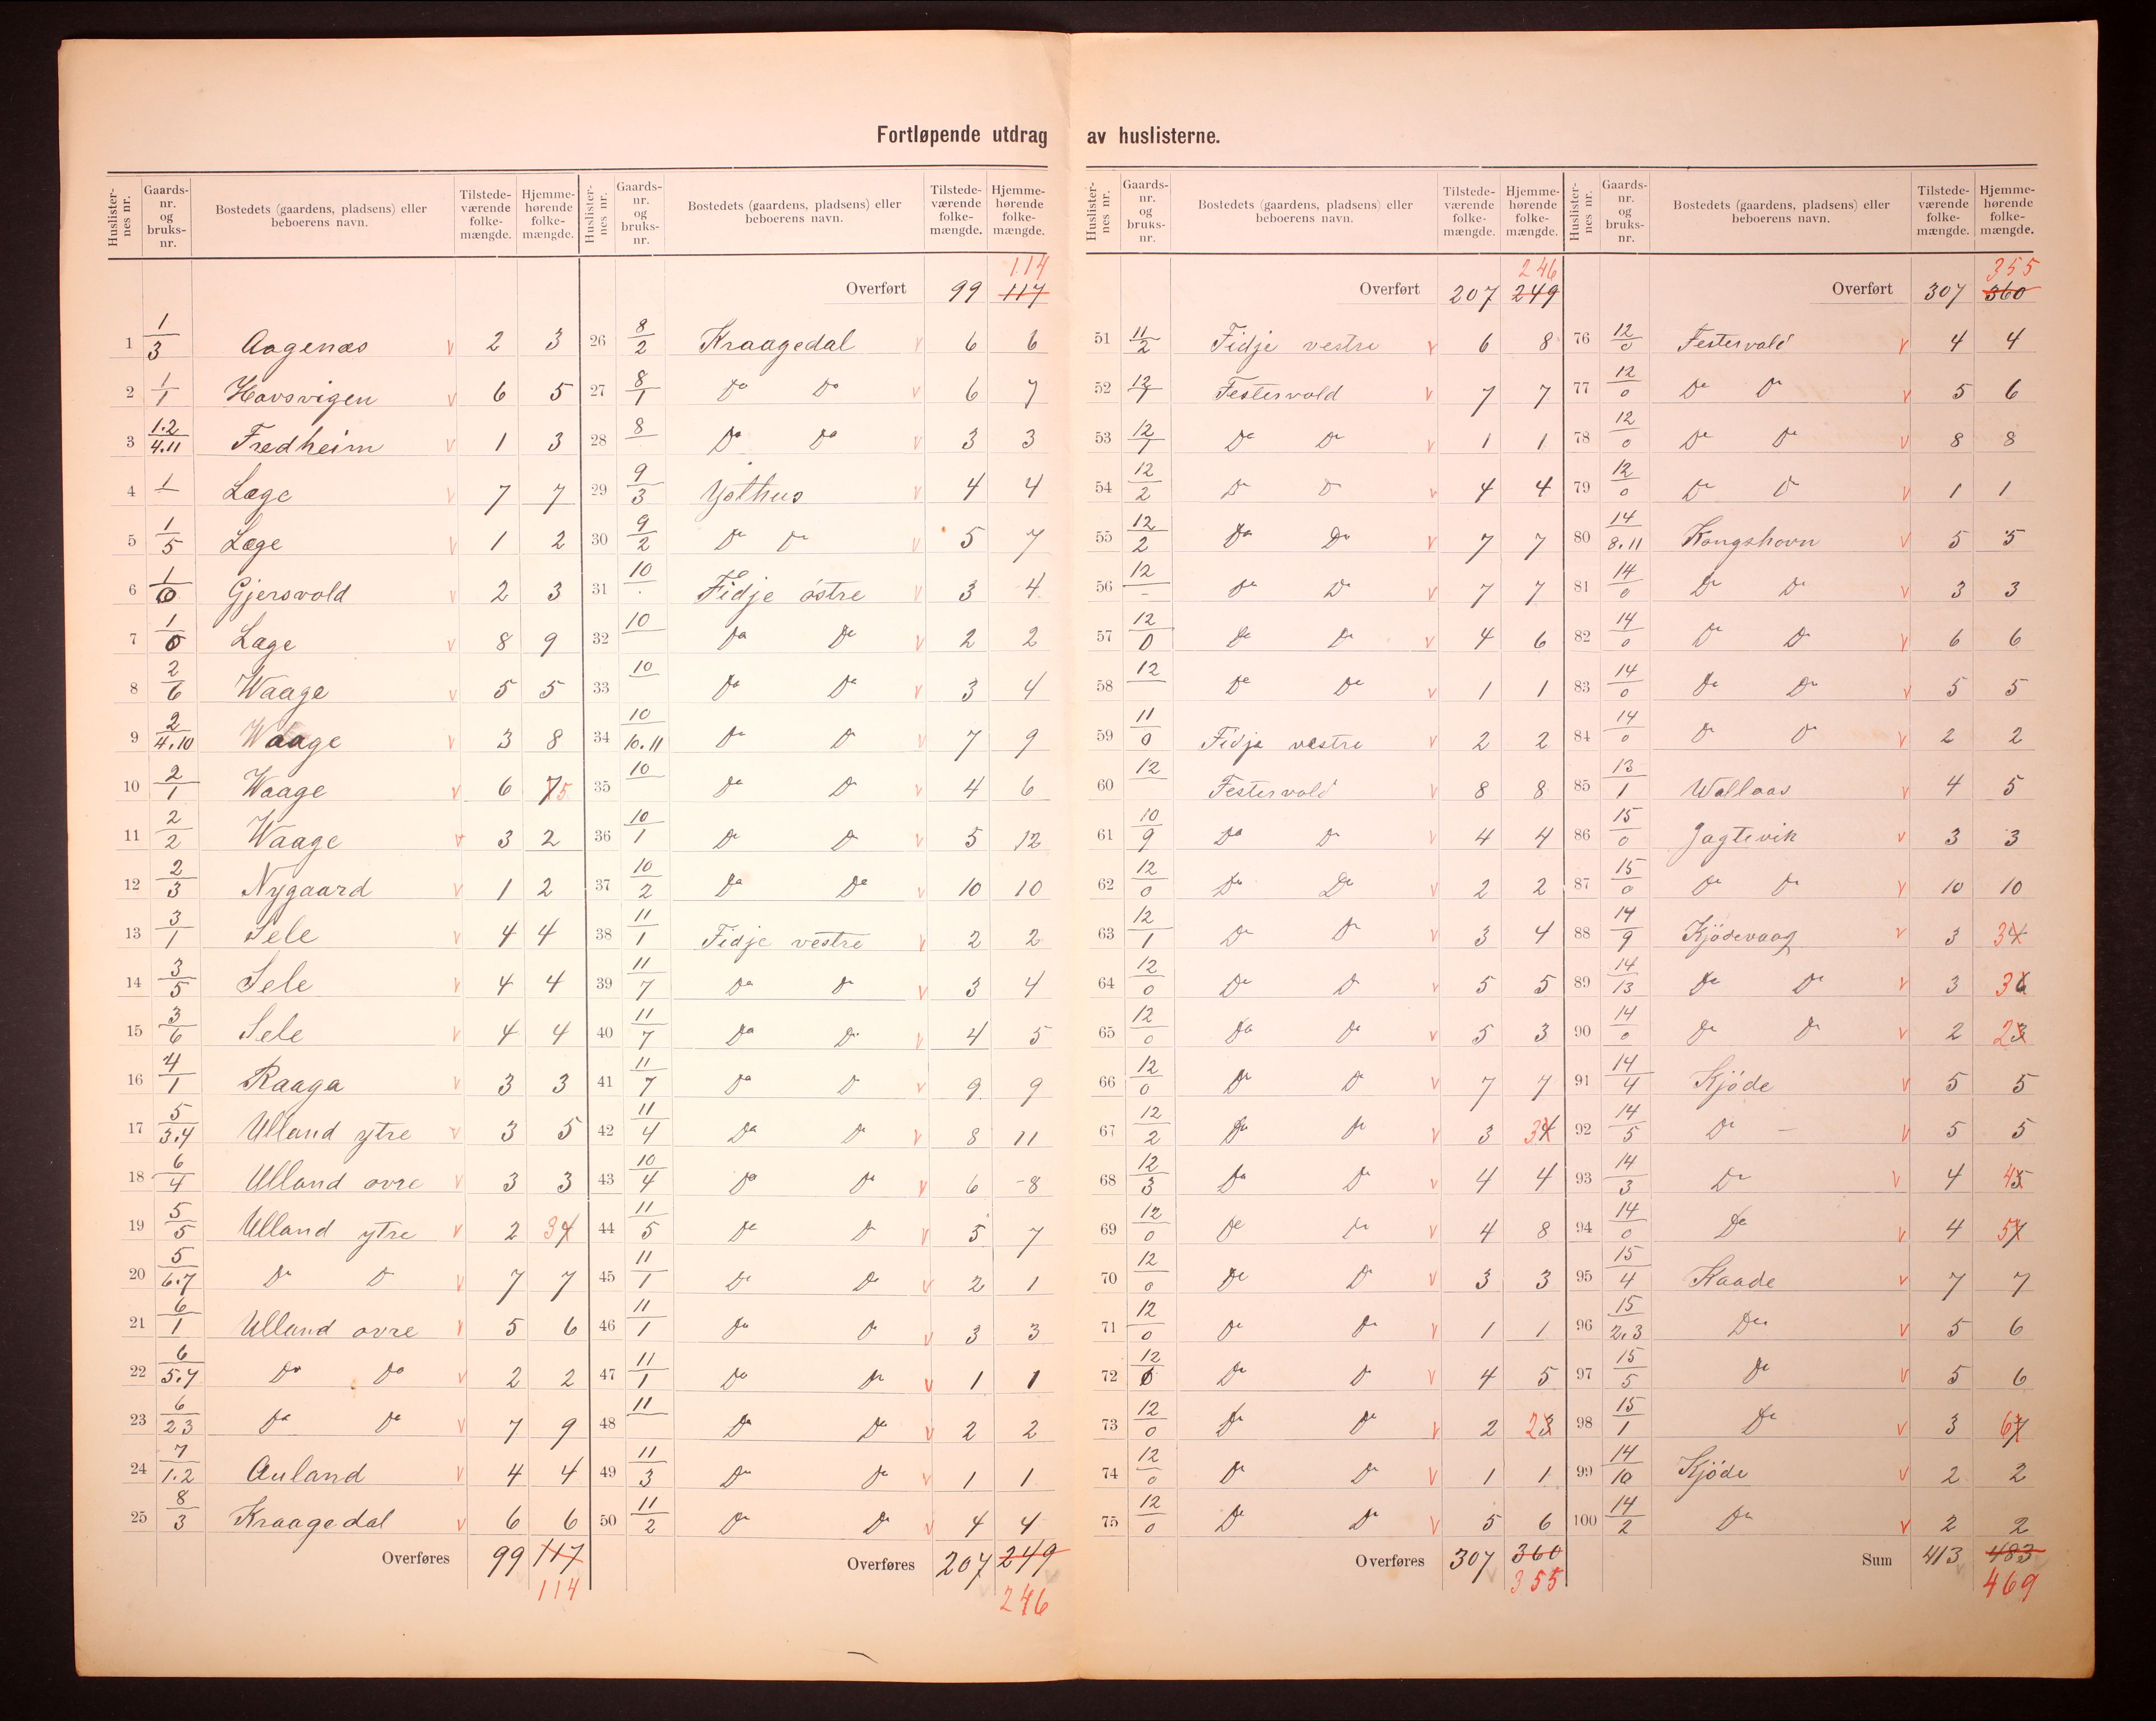 Fortløpende utdrag av huslisterne.
Huslisternes nr. | Gaards-nr. og bruks-nr. | Bostedets (gaardens, pladsens) eller beboerens navn. | Tilstedeværende folkemængde. | Hjemmehørende folkemængde.
1 1/3 Aagenæs v 2 3
2 1/1 Hovsvigen v 6 5
3 1.2/4.11 Fredheim v 1 3
4 1/ Læge v 7 7
5 1/5 Læge v 1 2
6 1/0 Gjersvold v 2 3
7 1/0 Læge v 8 9
8 2/6 Waage v 5 5
9 2/4.10 Waage v 3 8
10 2/1 Waage v 6 7 5
11 2/2 Waage v 3 2
12 2/3 Nygaard v 1 2
13 3/1 Sele v 4 4
14 3/5 Sele v 4 4
15 3/6 Sele v 4 4
16 4/1 Raaga v 3 3
17 5/3.4 Ulland ytre v 3 5
18 6/4 Ulland øvre v 3 3
19 5/5 Ulland ytre v 2 3 4
20 5/6.7 Do Do v 7 7
21 6/1 Ulland øvre v 5 6
22 6/5.7 Do Do v 2 2
23 6/23 Do Do v 7 9
24 7/1.2 Auland v 4 4
25 8/3 Kraagedal v 6 6
Overføres 99 117
114
Huslisternes nr. | Gaards-nr. og bruks-nr. | Bostedets (gaardens, pladsens) eller beboerens navn. | Tilstedeværende folkemængde. | Hjemmehørende folkemængde.
114
Overført 99 117
26 8/2 Kraagedal v 6 6
27 8/1 Do Do v 6 7
28 8/ Do Do v 3 3
29 9/3 v 4 4
30 9/2 Do Do v 5 7
31 10/ Fidje østre v 3 4
32 10/ Do Do v 2 2
33 10/ Do Do v 3 4
34 10/10.11 Do Do v 7 9
35 10/ Do Do v 4 6
36 10/1 Do Do v 5 12
37 10/2 Do Do v 10 10
38 11/1 Fidje vestre v 2 2
39 11/7 Do Do v 3 4
40 11/7 Do Do v 4 5
41 11/7 Do Do v 9 9
42 11/4 Do Do v 8 11
43 10/4 Do Do v 6 8
44 11/5 Do Do v 5 7
45 11/1 Do Do v 2 1
46 11/1 Do Do v 3 3
47 11/1 Do Do v 1 1
48 11/ Do Do v 2 2
49 11/3 Do Do v 1 1
50 11/2 Do Do v 4 4
Overføres 207 249
246
Huslisternes nr. | Gaards-nr. og bruks-nr. | Bostedets (gaardens, pladsens) eller beboerens navn. | Tilstedeværende folkemængde. | Hjemmehørende folkemængde.
246
Overført 207 249
51 11/2 Fidje vestre v 6 8
52 12/1 Festervold v 7 7
53 12/1 Do Do v 1 1
54 12/2 Do Do v 4 4
55 12/2 Do Do v 7 7
56 12/- Do Do v 7 7
57 12/0 Do Do v 4 6
58 12/ Do Do v 1 1
59 11/0 Fidje vestre v 2 2
60 12/ Festervold v 8 8
61 10/9 Do Do v 4 4
62 12/0 Do Do v 2 2
63 12/1 Do Do v 3 4
64 12/0 Do Do v 5 5
65 12/0 Do Do v 5 3
66 12/0 Do Do v 7 7
67 12/2 Do Do v 3 3 4
68 12/3 Do Do v 4 4
69 12/0 Do Do v 4 8
70 12/0 Do Do v 3 3
71 12/0 Do Do v 1 1
72 12/0 Do Do v 4 5
73 12/0 Do Do v 2 2 3
74 12/0 Do Do v 1 1
75 12/0 Do Do v 5 6
Overføres 307 360
355
Huslisternes nr. | Gaards-nr. og bruks-nr. | Bostedets (gaardens, pladsens) eller beboerens navn. | Tilstedeværende folkemængde. | Hjemmehørende folkemængde.
355
Overført 307 360
76 12/0 Festervold v 4 4
77 12/0 Do Do v 5 6
78 12/0 Do Do v 8 8
79 12/0 Do Do v 1 1
80 14/8.11 Kongshovn v 5 5
81 14/0 Do Do v 3 3
82 14/0 Do Do v 6 6
83 14/0 Do Do v 5 5
84 14/0 Do Do v 2 2
85 13/1 Wallaas v 4 5
86 15/0 Jagtevik v 3 3
87 15/0 Do Do v 10 10
88 14/9 Kjødevaag v 3 3 4
89 14/13 Do Do v 3 3 6
90 14/0 Do Do v 2 2 3
91 14/4 Kjøde v 5 5
92 14/5 Do - v 5 5
93 14/3 Do v 4 4 5
94 14/0 Do v 4 5 7
95 15/4 Kaade v 7 7
96 15/2.3 Do v 5 6
97 15/5 Do v 5 6
98 15/1 Do v 3 6 7
99 14/10 Kjøde v 2 2
100 14/2 Do v 2 2
Sum 413 483
469